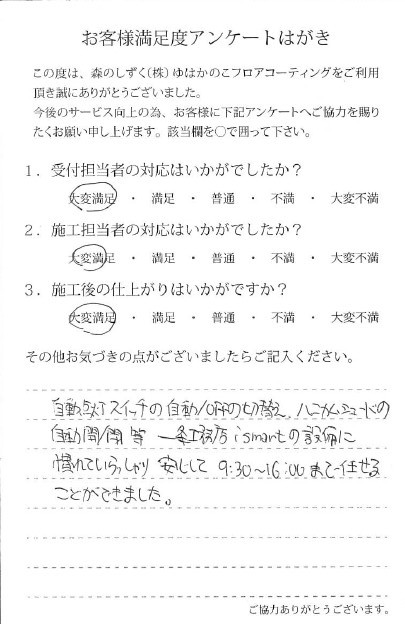 お客様満足度アンケートはがき
この度は、森のしずく(株)ゆはかのこフロアコーティングをご利用
頂き誠にありがとうございました。
今後のサービス向上の為、お客様に下記アンケートへご協力を賜り
たくお願い申し上げます。該当欄を○で囲って下さい。
1．受付担当者の対応はいかがでしたか？
大変満足 ・ 満足 ・ 普通 ・ 不満 ・ 大変不満
2．施工担当者の対応はいかがでしたか？
大変満足 ・ 満足 ・ 普通 ・ 不満 ・ 大変不満
3．施工後の仕上がりはいかがですか？
大変満足 ・ 満足 ・ 普通 ・ 不満 ・ 大変不満
その他お気づきの点がございましたらご記入ください。
自動点灯スイッチの自動/OFFの切替え、ハニカムシェードの
自動開閉等 一条工務店ismartの設備に
慣れていらっしゃり 安心して 9:30〜16:00まで任せる
ことができました。
ご協力ありがとうございます。